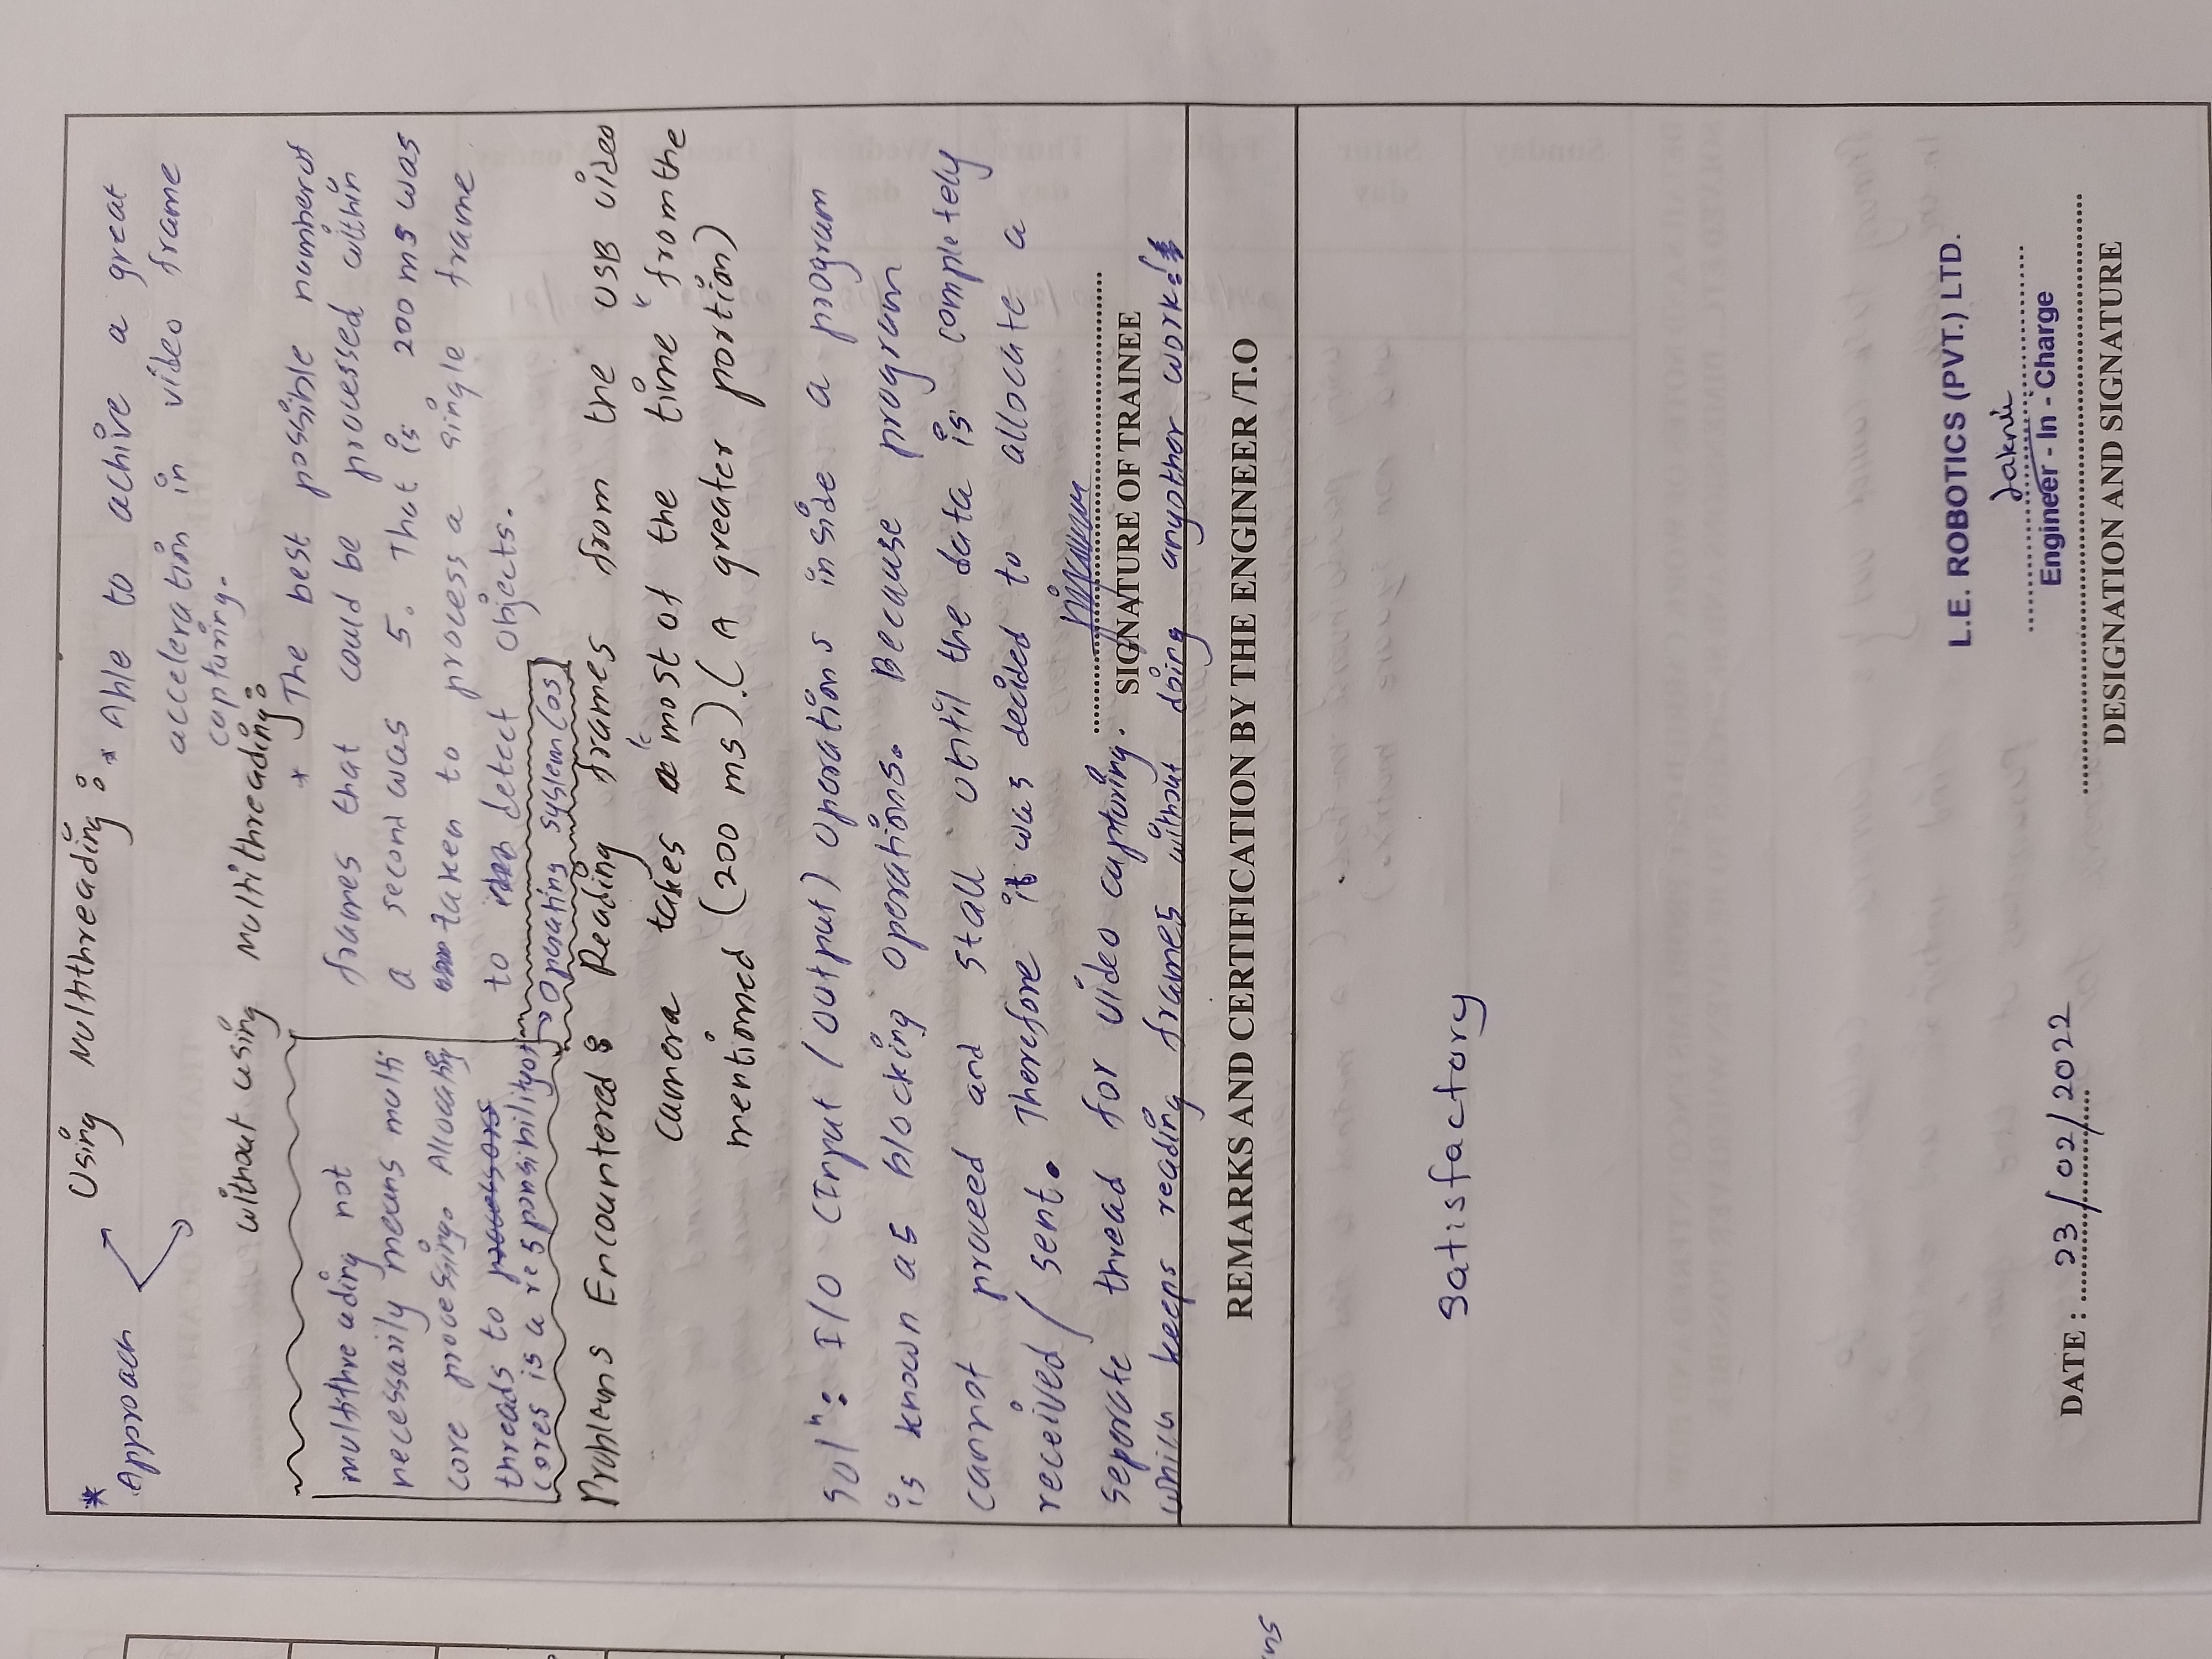 *
Approach
Using Multithreading :
* Able to achive a great
acceleration in video frame
capturing.
without using Multithreading:
* The best possible number of
frames that could be processed within
a second was 5. That is 200 ms was
taken to process a single frame
to detect objects.
multithreading not
necessarily means multi
core processing. Allocating
threads to processors
cores is a responsibility of
→ Operating system (OS)
Problems Encountered : Reading frames from the USB video
camera takes "most of the time" from the
mentioned (200 ms). (A greater portion)
Solⁿ: I/O (Input / Output) operations inside a program
is known as blocking operations. Because program
cannot proceed and stall until the data is completely
received / sent. Therefore it was decided to allocate a
seperate thread for video capturing.
which keeps reading frames without doing anyother work!
SIGNATURE OF TRAINEE
REMARKS AND CERTIFICATION BY THE ENGINEER /T.O
Satisfactory
L.E. ROBOTICS (PVT.) LTD.
Engineer - In - Charge
DATE : 23/02/2022
DESIGNATION AND SIGNATURE